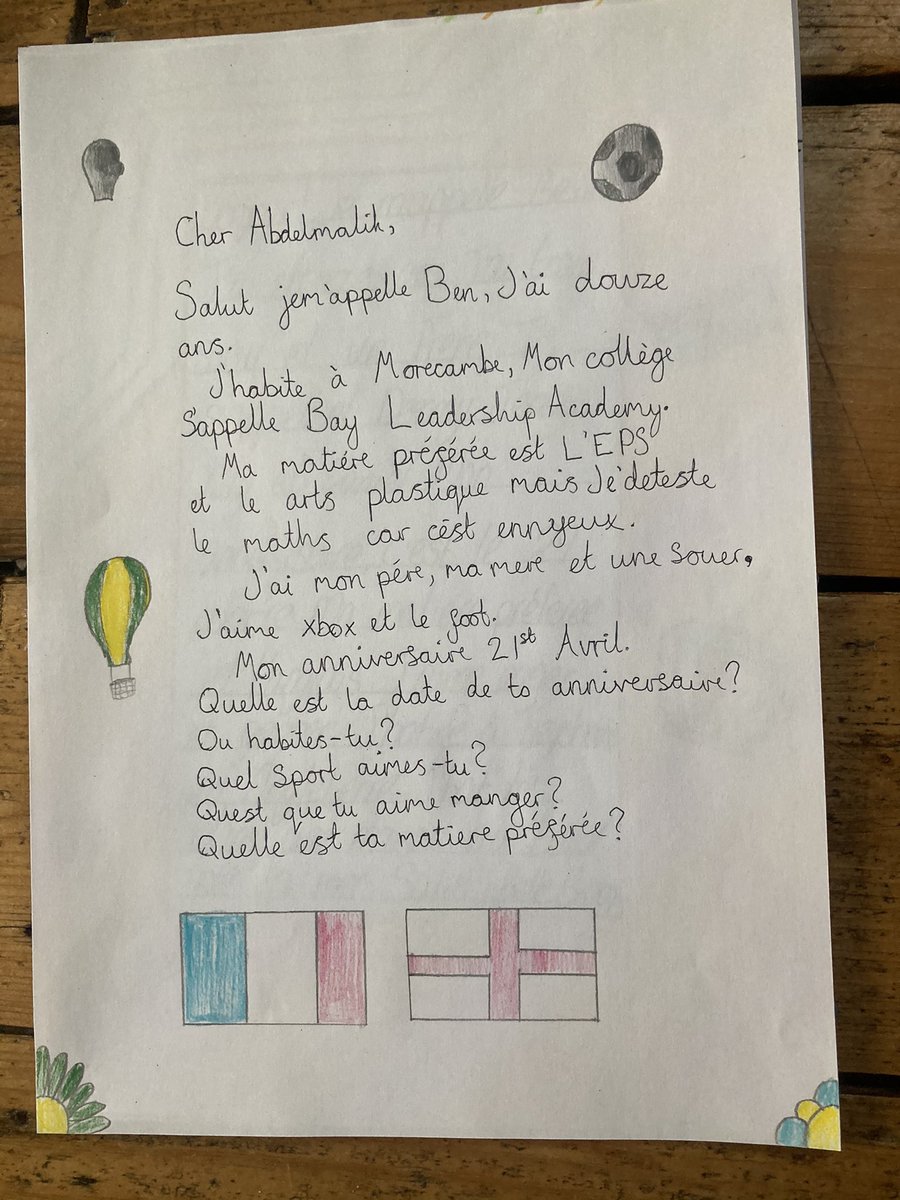 Cher Abdelmalik,
Salut jem'appelle Ben, J'ai douze
ans.
J'habite à Morecambe, Mon collège
S'appelle Bay Leadership Academy.
Ma matiére préférée est L'EPS
et le arts plastique mais Je deteste
le maths car cést ennyeux.
J'ai mon pére, ma mere et une Souer,
J'aime xbox et le foot.
Mon anniversaire 21st Avril.
Quelle est la date de to anniversaire?
Ou habites-tu?
Quel Sport aimes-tu?
Quest que tu aime manger?
Quelle est ta matiere préférée?